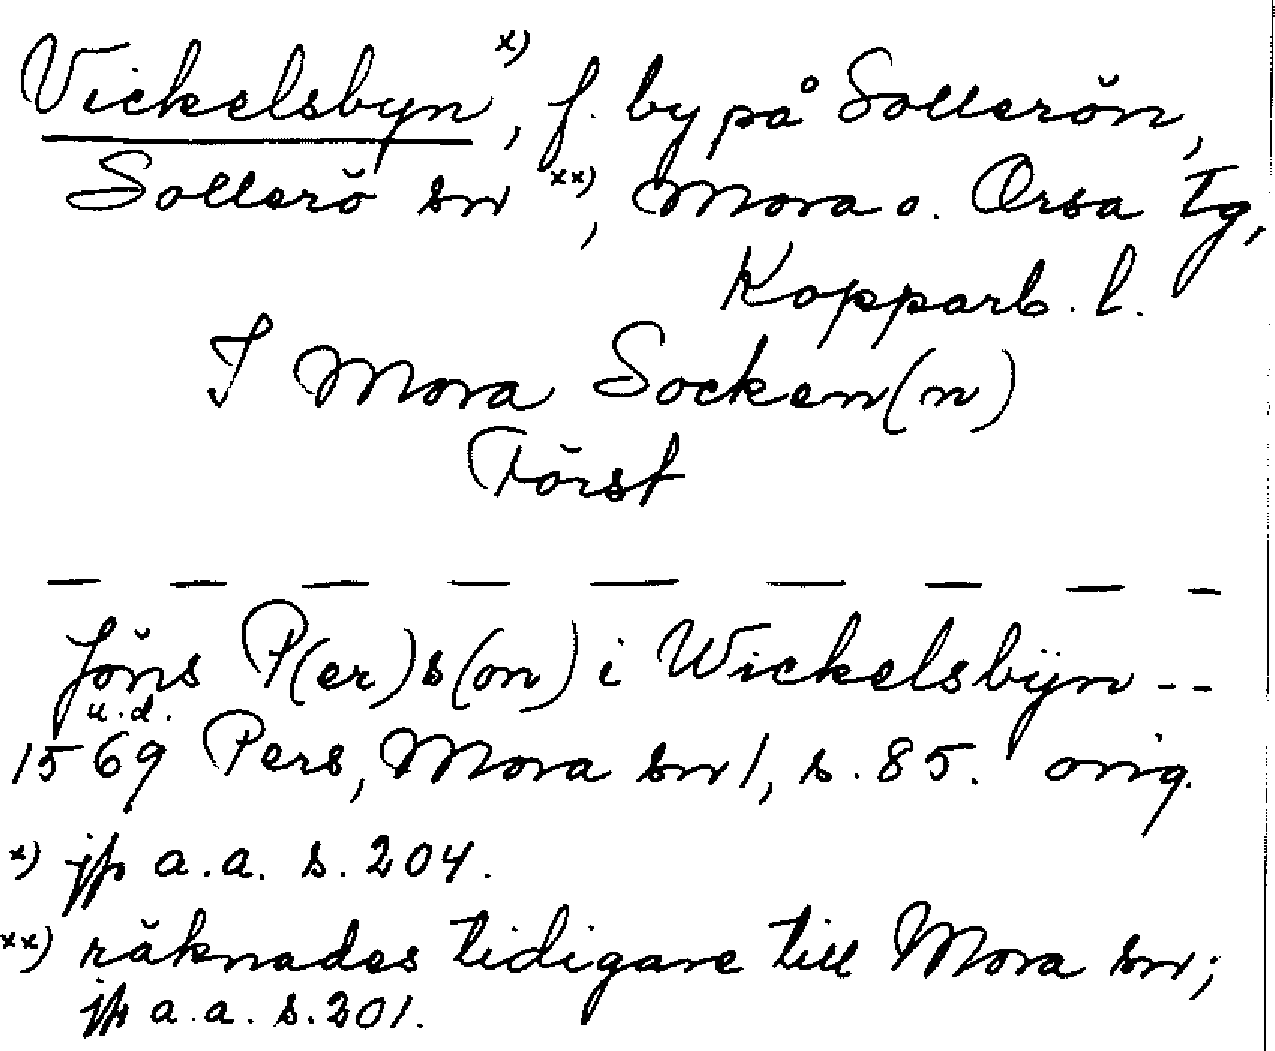 Vickelsbyn x), f. by på Sollerön,
Sollerö sn xx), Mora o. Orsa tg,
Kopparb. l.
I Mora Socken(n)
Först
— — — — — — — — -
Jöns P(er)s(on) i Wickelsbÿn --
1569 u.d. Pers, Mora sn 1, s. 85. orig.
x) jfr a.a. s. 204.
xx) räknades tidigare till Mora sn;
jfr a.a. s. 201.